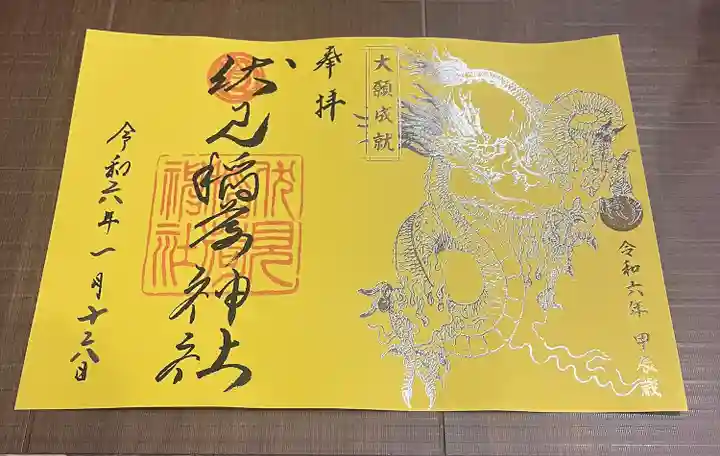 令和六年 甲辰歳
大願成就
奉拝
伏見稲荷神社
伏見稲荷神社
令和六年一月十六日